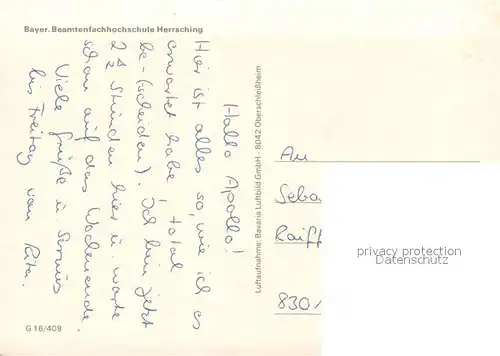 Bayer. Beamtenfachhochschule Herrsching
Hallo Apollo!
Hier ist alles so, wie ich es
erwartet habe (total
be-(scheiden). Ich bin jetzt
2 Stunden hier u. warte
schon auf das Wochenende.
Viele Grüße u.
bis Freitag von Rita.
Luftaufnahme: Bavaria Luftbild GmbH - 8042 Oberschleißheim
An
Seba
Raiff
830
privacy protection
Datenschutz
G 16/408